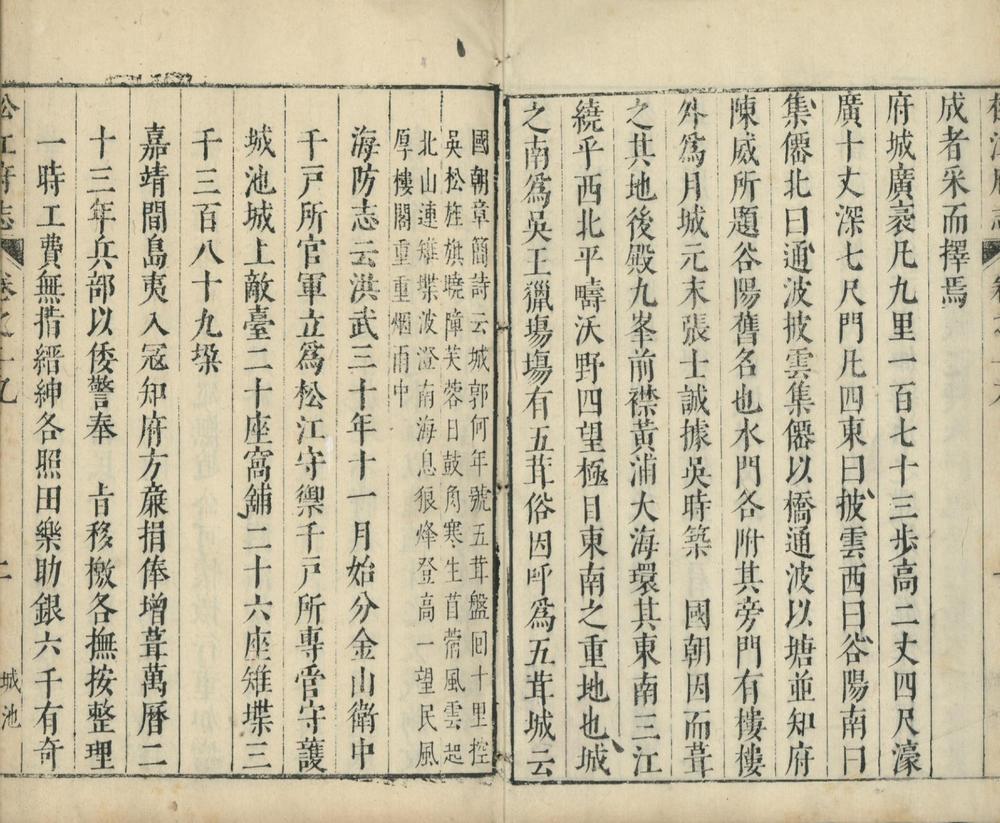 松江府志
成者采而擇焉
府城廣袤凡九里一百七十三步高二丈四尺濠
廣十丈深七尺門凡四東曰披雲西曰谷陽南曰
集僊北曰通波披雲集僊以橋通波以塘並知府
陳威所題谷陽舊名也水門各附其旁門有樓樓
外爲月城元末張士誠據吳時築 國朝因而葺
之其地後殿九峯前襟黃浦大海環其東南三江
繞平西北平疇沃野四望極目東南之重地也城
之南爲吳王獵塲塲有五茸俗因呼爲五茸城云
國朝章簡詩云城郭何年號五茸盤回十里控
吳松旌旗曉障芙蓉日鼓角寒生苜蓿風雲起
北山連雉堞波澄南海息狼烽登高一望民風
厚樓閣重重烟雨中
海防志云洪武三十年十一月始分金山衛中
千戶所官軍立爲松江守禦千戶所專管守護
城池城上敵臺二十座窩舖二十六座雉堞三
千三百八十九垜
嘉靖間島夷入冦知府方亷捐俸增葺萬曆二
十三年兵部以倭警奉 旨移檄各撫按整理
一時工費無措縉紳各照田樂助銀六千有奇
松江府志 卷之十九 二 城池